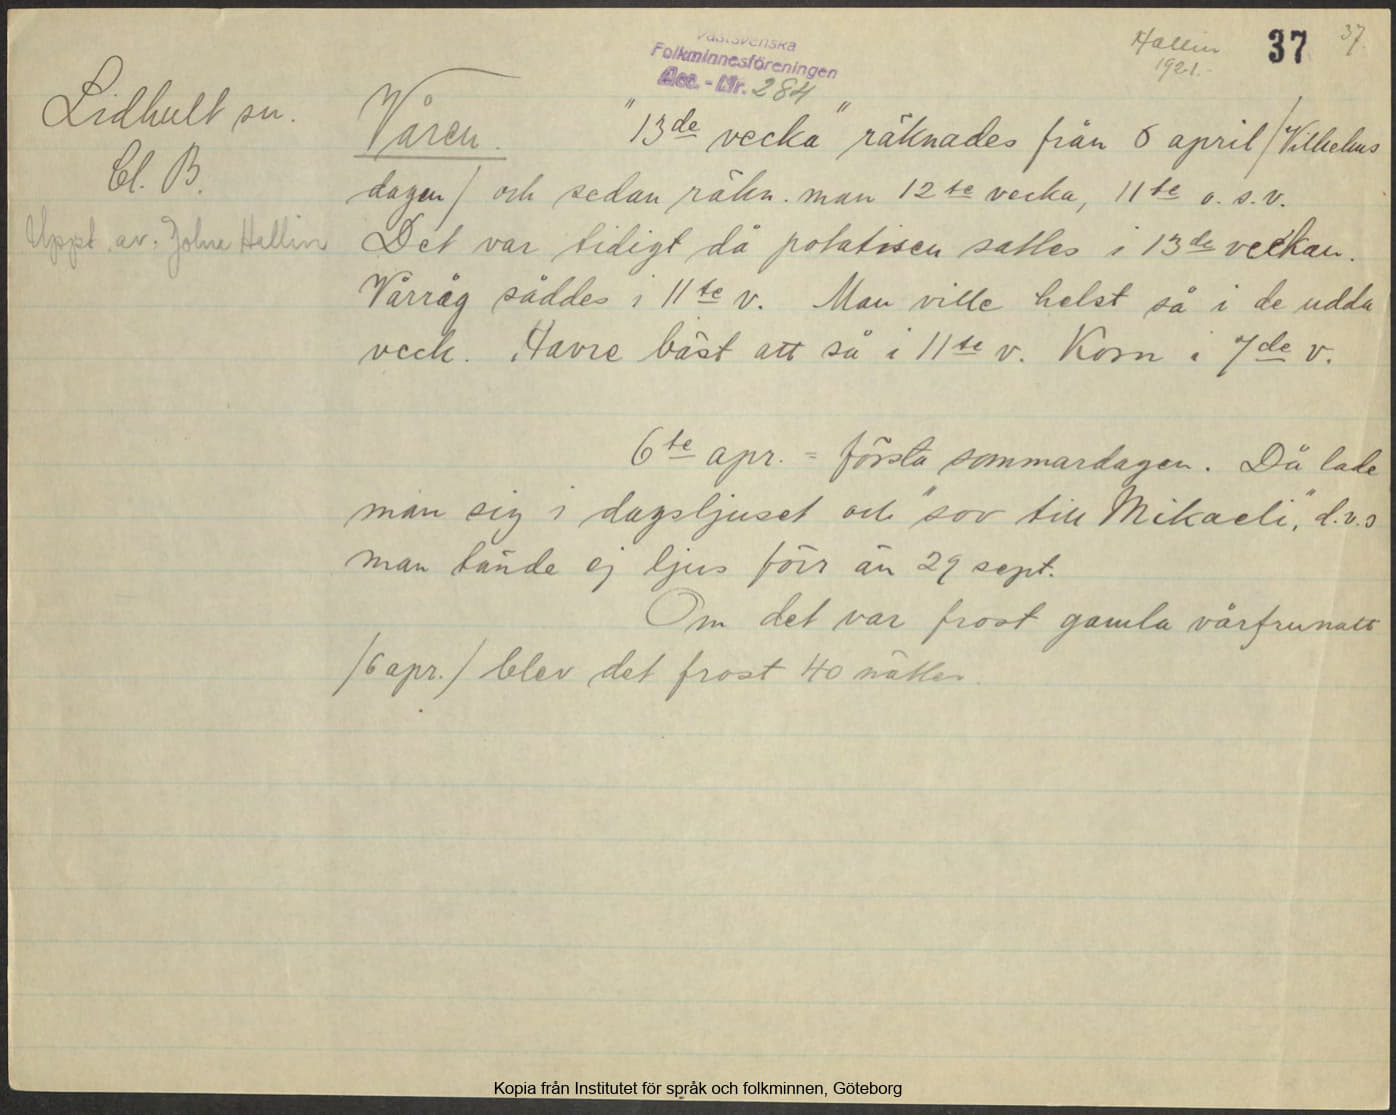 Västsvenska
Folkminnesföreningen
Acc. - Nr. 284
Hallin
1921.-
37
37.
Lidhult sn.
Cl. B.
Uppt. av. Hallin
Våren. "13de vecka" räknades från 6 april /Vilhelms
dagen/ och sedan räkn. man 12te vecka, 11te o. s. v.
Det var tidigt då potatisen sattes i 13de veckan.
Vårråg såddes i 11te v. Man ville helst så i de udda
veck. Havre bäst att så i 11te v. Korn i 7de v.
6te apr. = första sommardagen. Då lade
man sig i dagsljuset och "sov till Mikaeli", d.v.s
man tände ej ljus förr än 29 sept.
Om det var frost gamla vårfrunatt
/6 apr./ blev det frost 40 nätter.
Kopia från Institutet för språk och folkminnen, Göteborg